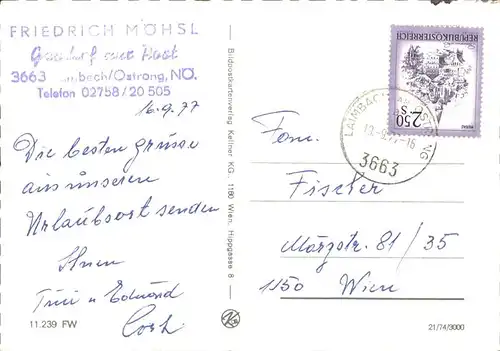 FRIEDRICH MÖHSL
3663 Laimbach/Ostrong, NÖ.
Telefon 02758/20 505
16.9.77
Die besten Grüsse
aus unserem
Urlaubsort senden
Ihnen
Trui u Edmund
11.239 FW
Bilddostkartenverlag Kellner KG., 1180 Wien, Hippgasse 8
REPUBLIK ÖSTERREICH
S 2.50
LAIMBACH AM OSTRONG
3663
Fam.
Fischer
Märzstr. 81/35
1150 Wien
21/74/3000